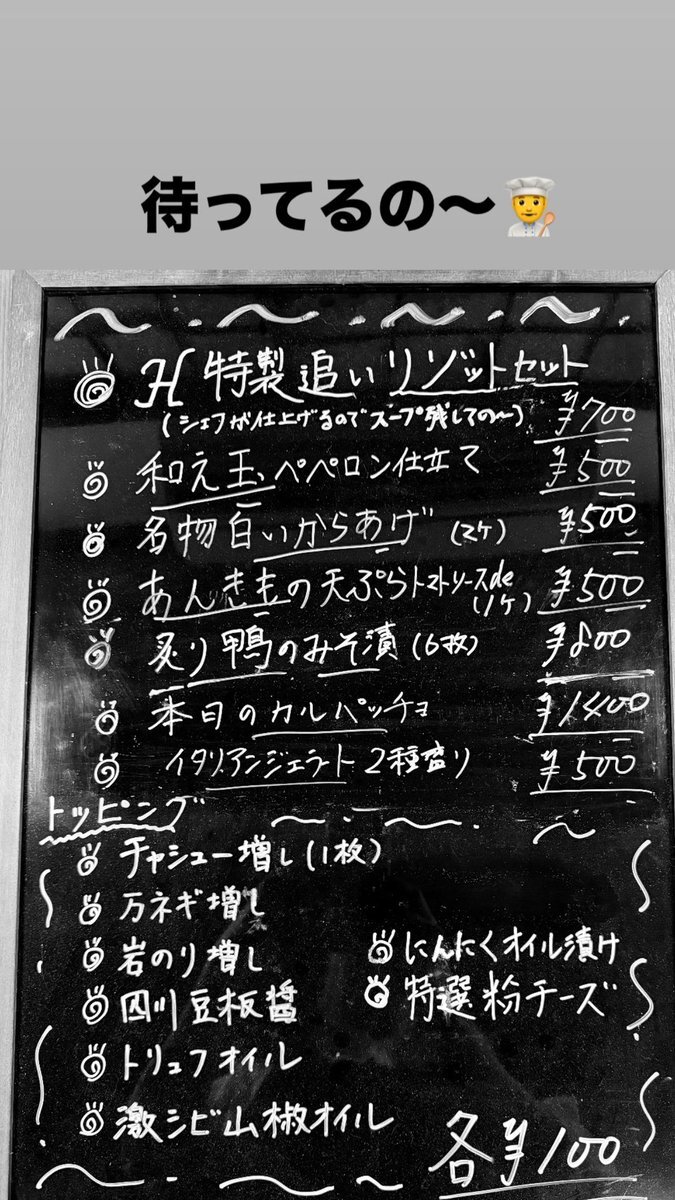 待ってるの〜👨‍🍳
H 特製追いリゾットセット
(シェフが仕上げるのでスープ残しての〜) ¥700
和え玉、ペペロン仕立て ¥500
名物白いからあげ (2ケ) ¥500
あんきもの天ぷらトマトソースde (1ケ) ¥500
炙り鴨のみそ漬 (6枚) ¥800
本日のカルパッチョ ¥1400
イタリアンジェラート2種盛り ¥500
トッピング
チャシュー増し(1枚)
万ネギ増し
岩のり増し
四川豆板醤
トリュフオイル
激シビ山椒オイル
にんにくオイル漬け
特選粉チーズ
各¥100